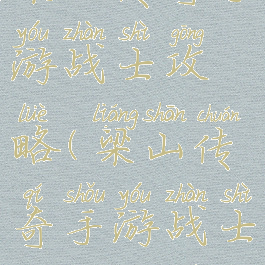 yóu zhàn shì gōng
游战士攻
lüè liáng shān chuán
略(梁山传
qí shǒu yóu zhàn shì
奇手游战士